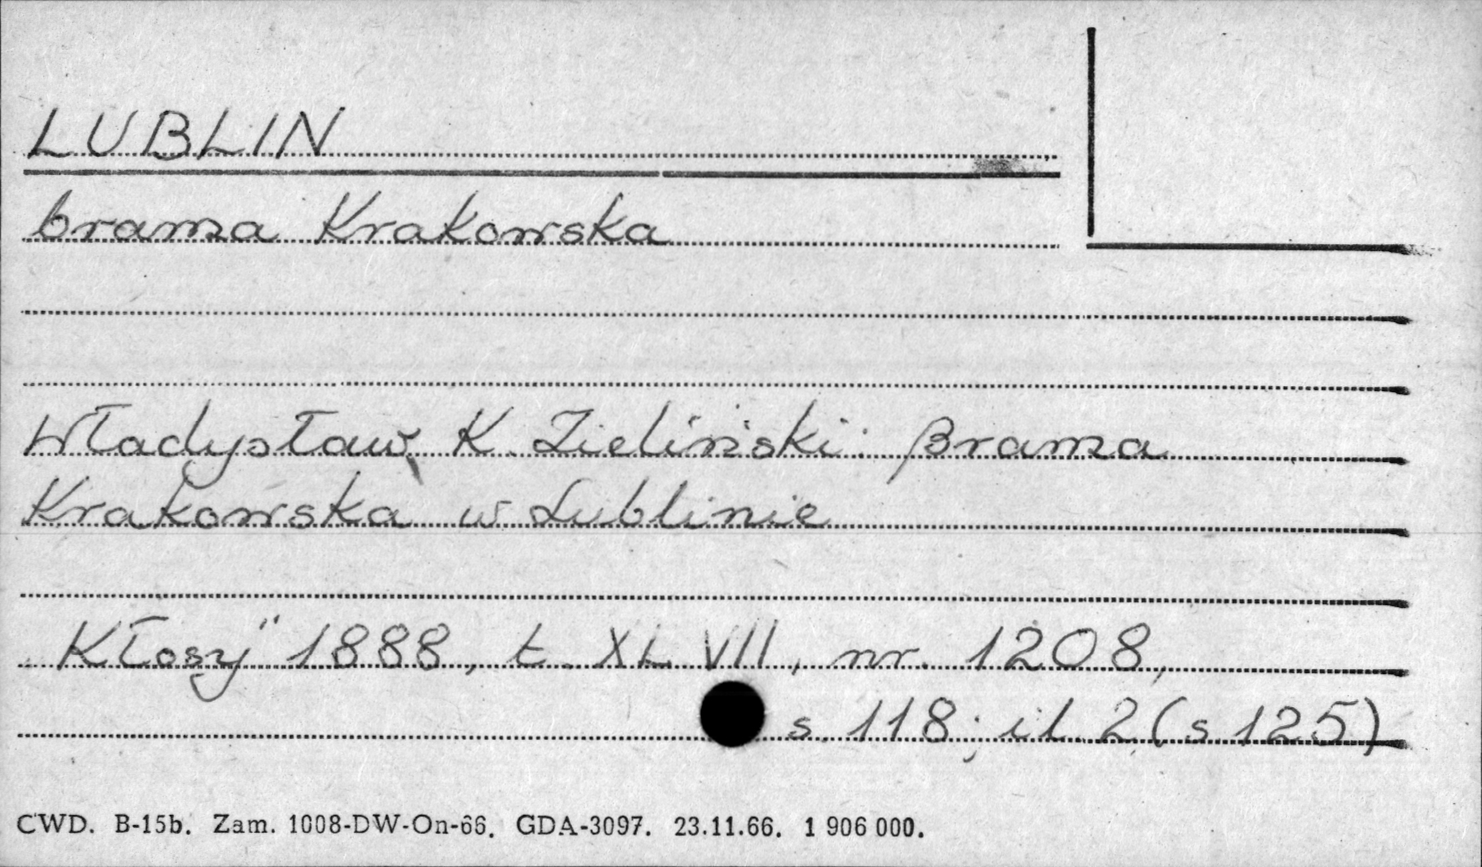 LUBLIN
brama Krakowska
Władysław K. Zieliński: Brama
Krakowska w Lublinie
„Kłosy" 1888, t. XLVII, nr. 1208,
s. 118; il. 2 (s 125)
CWD. B-15b. Zam. 1008-DW-On-66. GDA-3097. 23.11.66. 1 906 000.